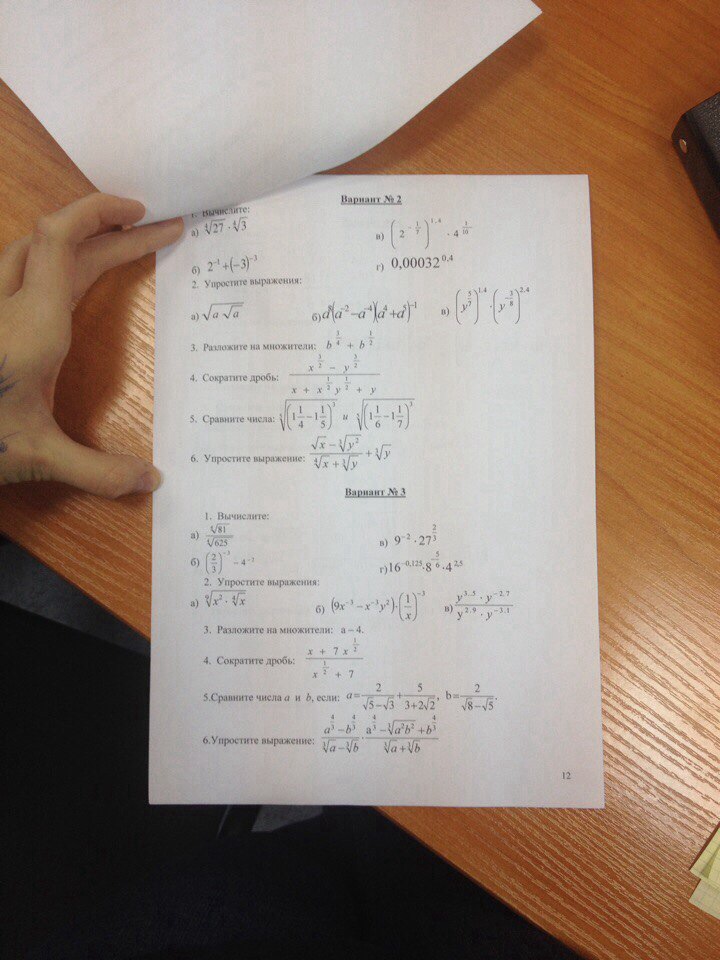 Вариант № 2
1. Вычислите:
а) ∜27 · ∜3 в) (2^(-1/7))^1,4 · 4^(1/10)
б) 2^-1 + (-3)^-3 г) 0,00032^0,4
2. Упростите выражения:
а) √(a √a) в) (y^(5/7))^1,4 · (y^(-3/8))^2,4
3. Разложите на множители: b^(3/4) + b^(1/2)
4. Сократите дробь: (x^(3/2) - y^(3/2)) / (x + x^(1/2) y^(1/2) + y)
5. Сравните числа: √((1 1/4 - 1 1/5)^3) и √((1 1/6 - 1 1/7)^3)
6. Упростите выражение: (√x - ∛(y^2)) / (∜x + ∛y) + ∛y
Вариант № 3
1. Вычислите:
а) ∜81 / ∜625 в) 9^-2 · 27^(2/3)
б) (2/3)^-3 - 4^-2 г) 16^-0,125 · 8^(-5/6) · 4^2,5
2. Упростите выражения:
б) (9x^-3 - x^-3 y^2) · (1/x)^-3 в) (y^3..5 · y^-2.7) / (y^2.9 · y^-3.1)
3. Разложите на множители: a – 4.
4. Сократите дробь: (x + 7 x^(1/2)) / (x^(1/2) + 7)
5.Сравните числа a и b, если: a = 2/(√5-√3) + 5/(3+2√2), b = 2/(√8-√5).
6.Упростите выражение: (a^(4/3) - b^(4/3)) / (∛a - ∛b) · (a^(4/3) - ∛(a^2b^2) + b^(4/3)) / (∛a + ∛b)
12